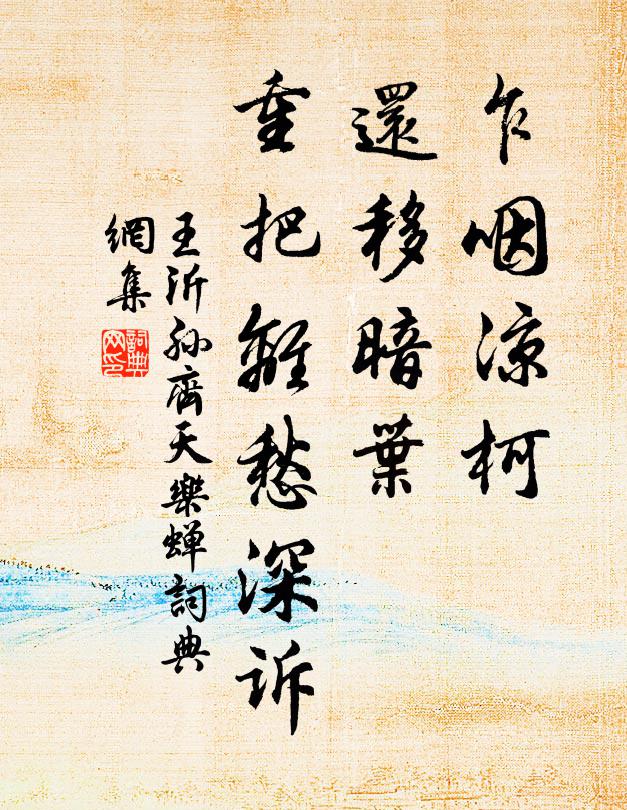 乍咽涼柯
還移暗葉
重把離愁深訴
王沂孫齊天樂蝉詞典
網集
詞典
网印